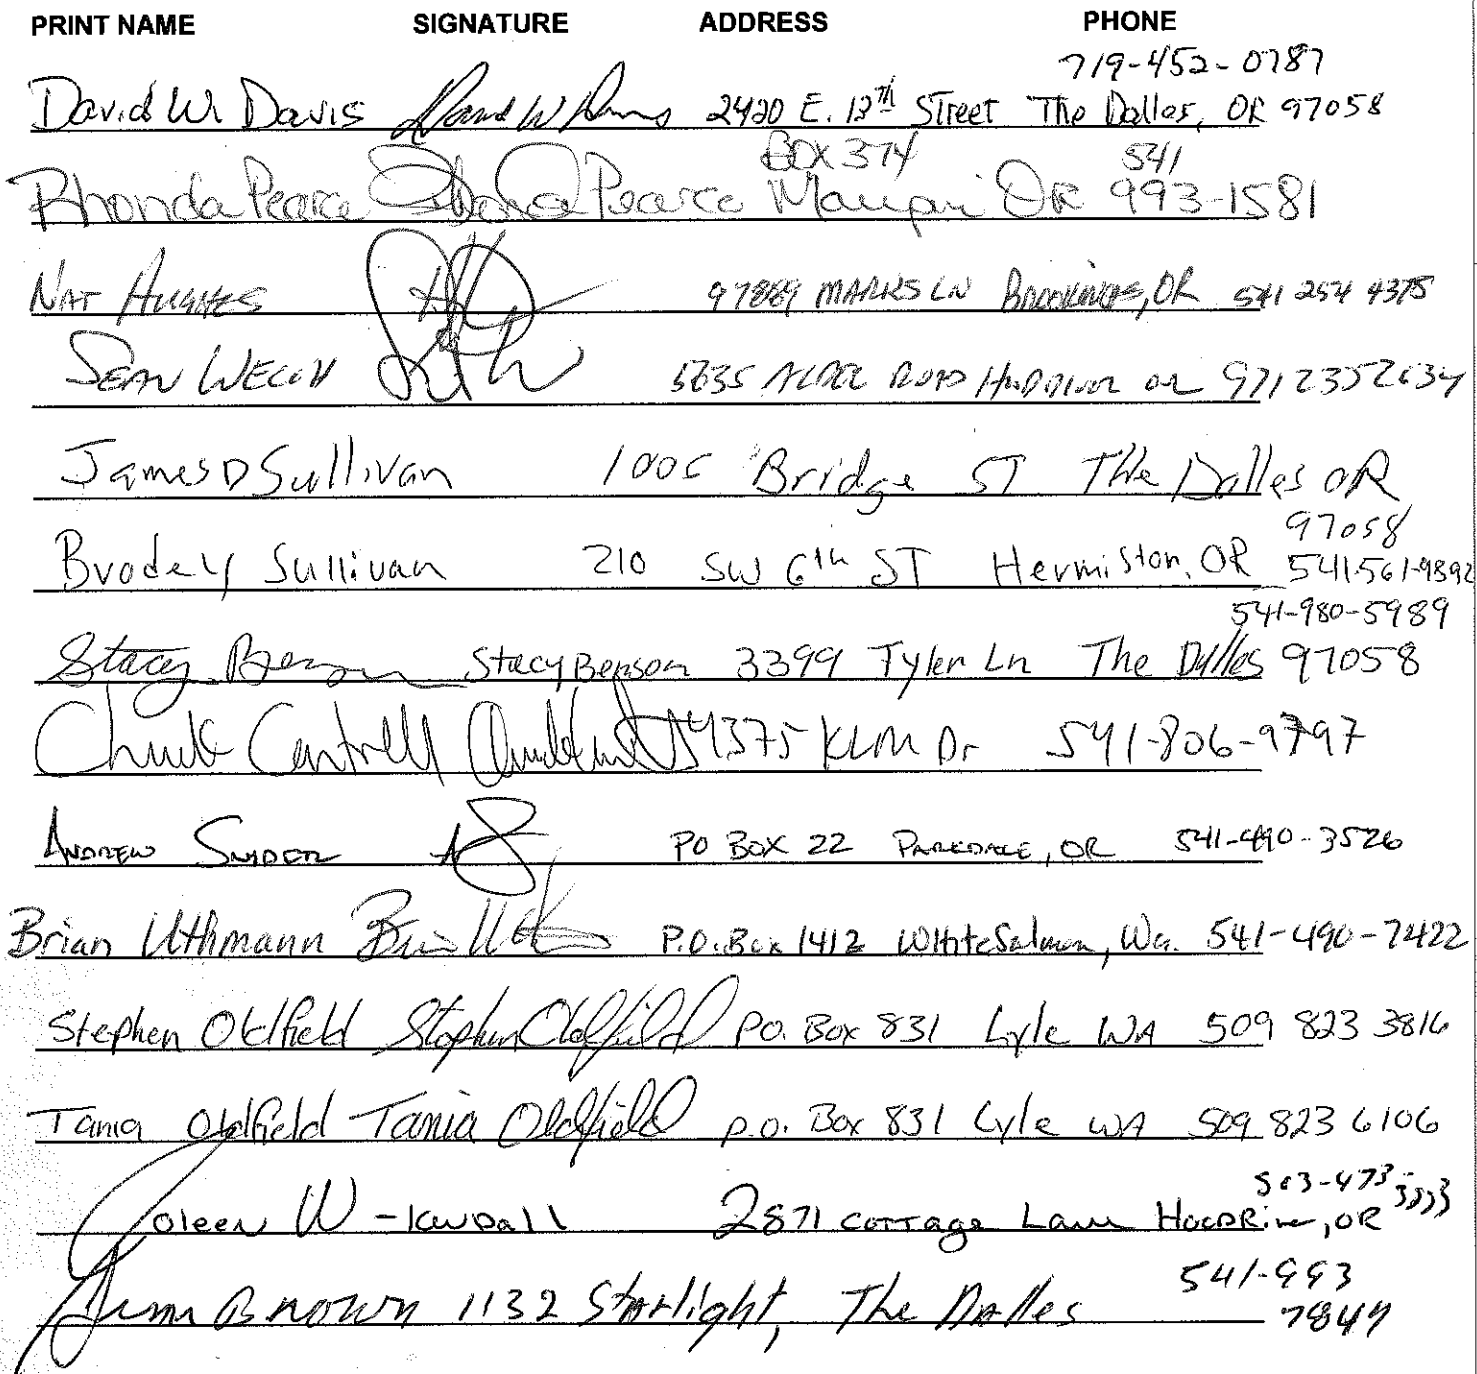 PRINT NAME SIGNATURE ADDRESS PHONE
719-452-0787
David W. Davis David W Davis 2420 E. 12th Street The Dalles, OR 97058
BOX 374 541
Rhonda Pearce Rhonda Pearce Maupin OR 993-1581
NAT HUGHES 97889 MARKS LN BROOKINGS, OR 541 254 4375
SEAN 5635 ROAD OR 9712352634
James D Sullivan 1005 Bridge ST The Dalles OR
97058
Brodely Sullivan 210 SW 6th ST Hermiston, OR 541-561-9892
541-980-5989
Stacy Benson Stacy Benson 3399 Tyler Ln The Dalles 97058
Chuck Cantrell 4375 KLM Dr 541-806-9797
ANDREW SNYDER AS PO BOX 22 PARKDALE, OR 541-490-3526
Brian Uthmann P.O. Box 1412 White Salmon, Wa. 541-490-7422
Stephen Oldfield Stephen Oldfield PO. Box 831 Lyle WA 509 823 3816
Tania Oldfield Tania Oldfield p.o. Box 831 Lyle WA 509 823 6106
503-473-3333
Coleen W-Kendall 2871 Cottage Lane HoodRiver, OR
541-993
Jim Brown 1132 Starlight, The Dalles 7847